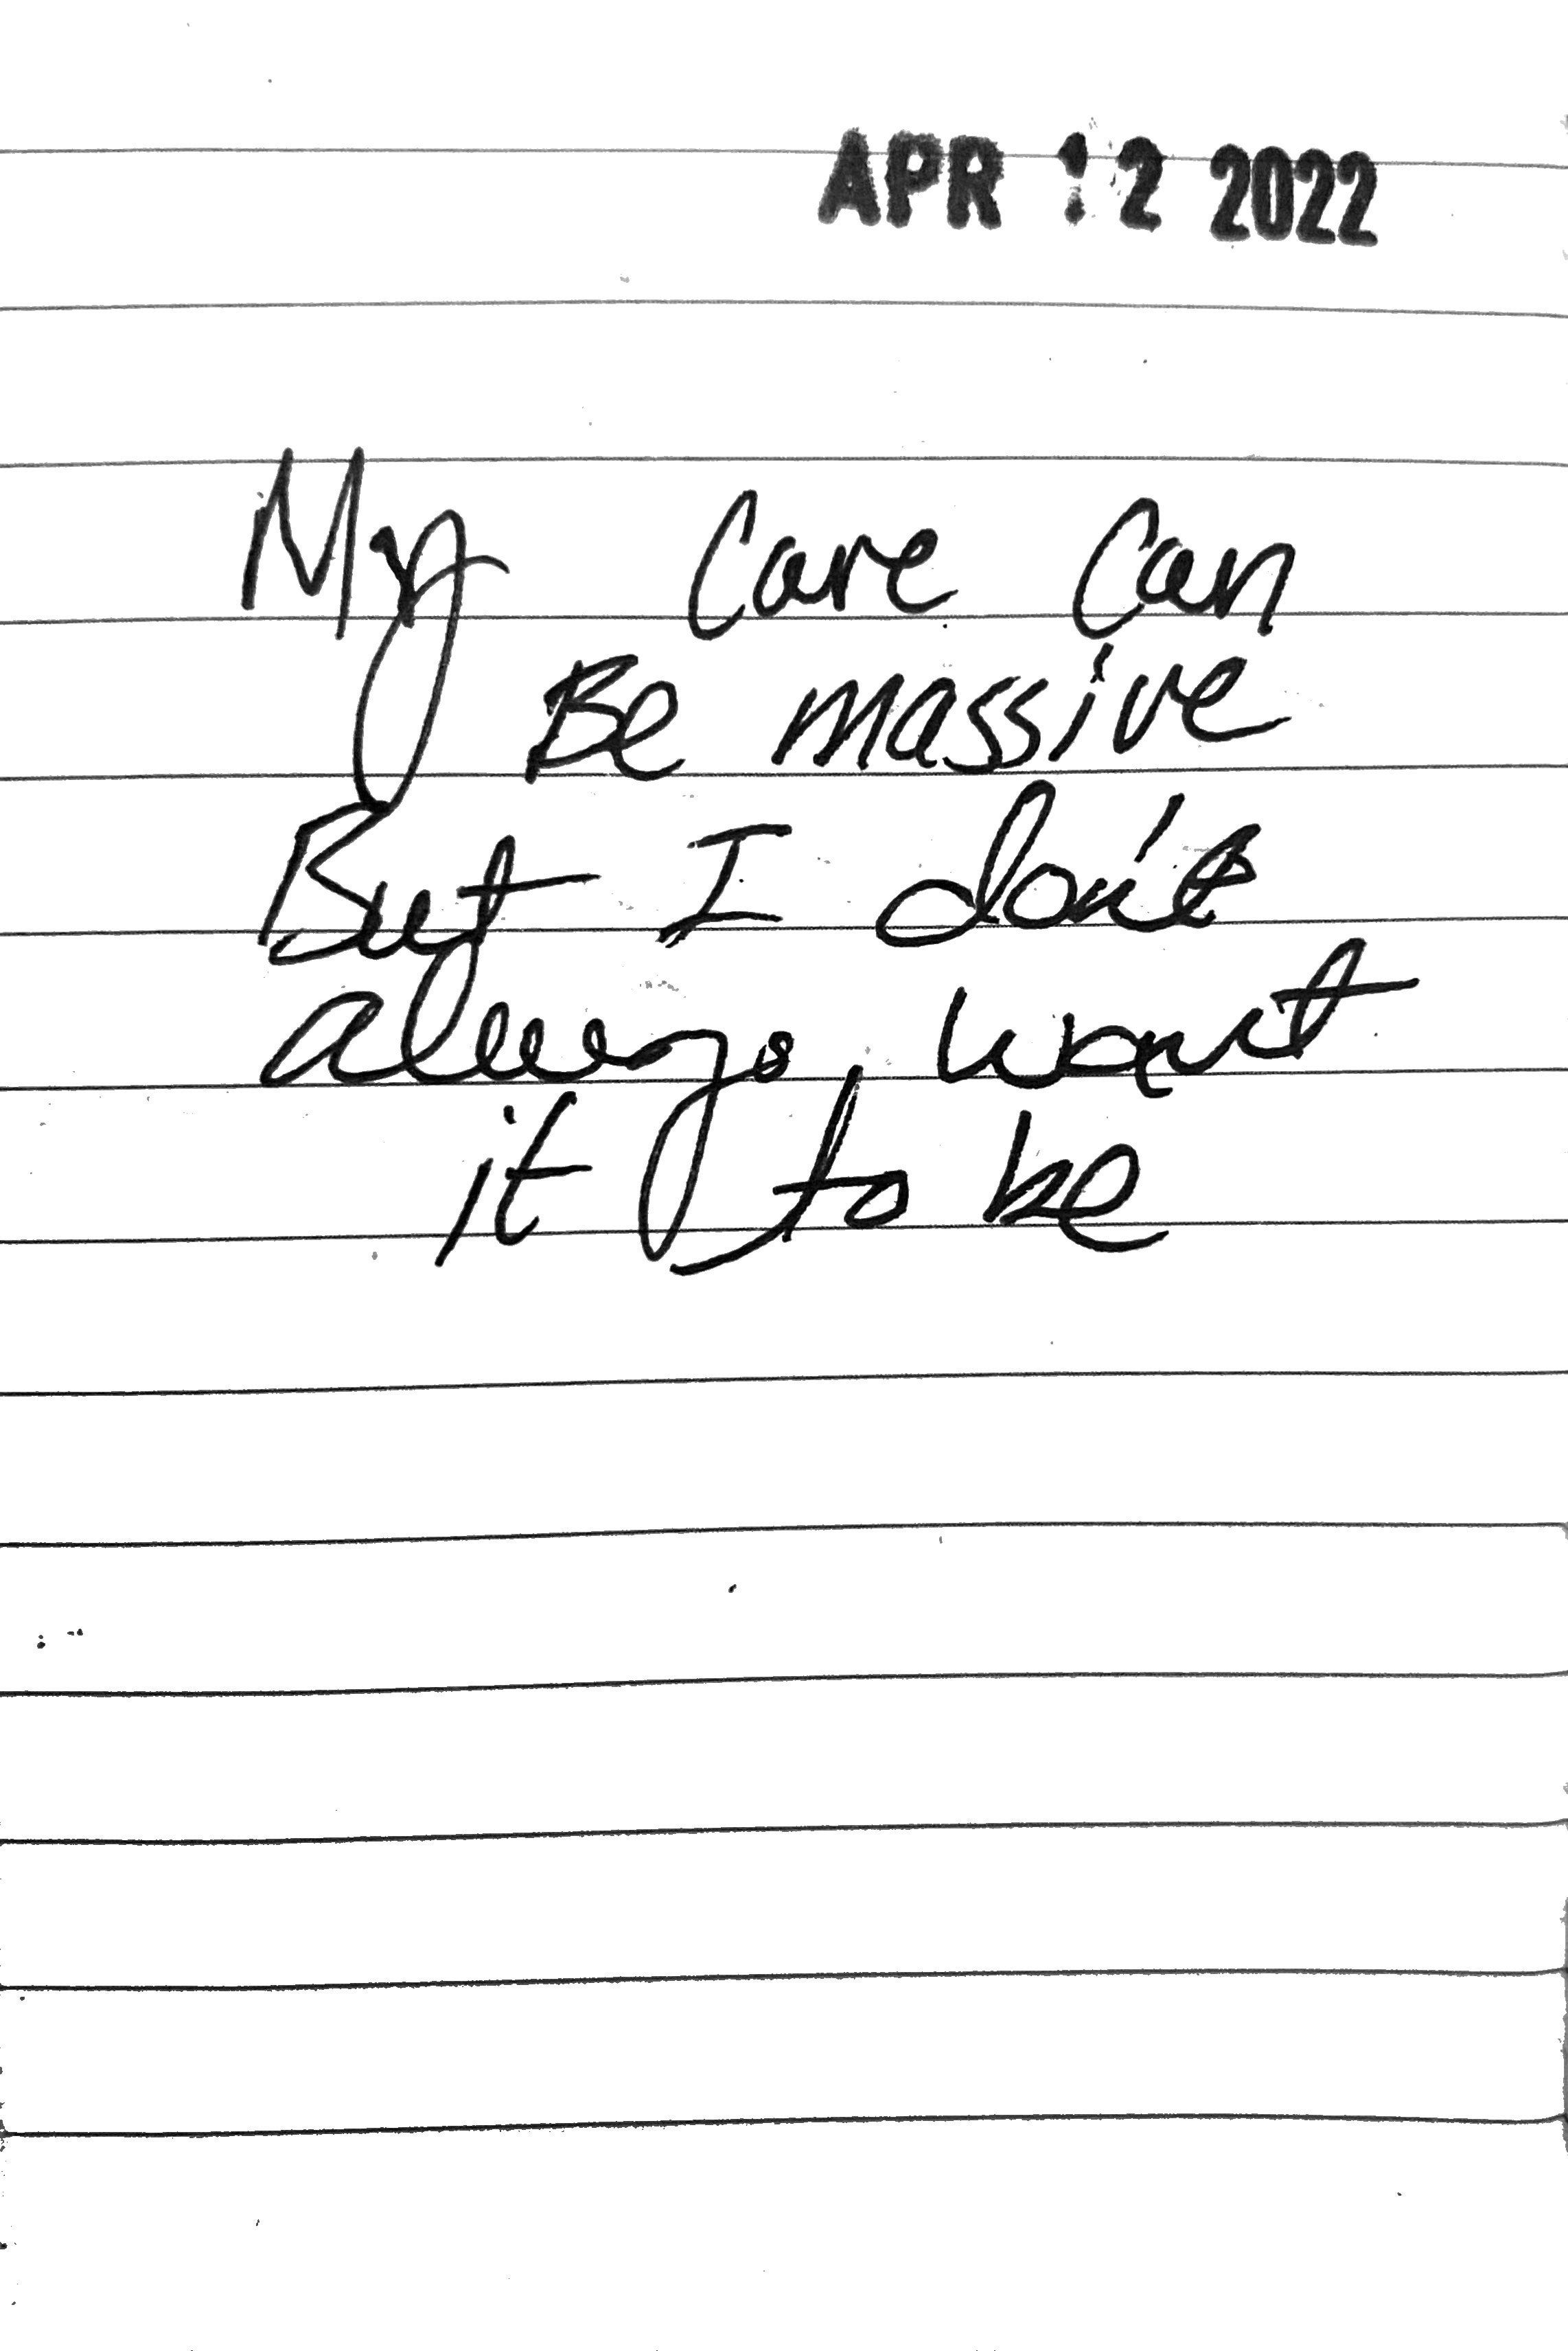 APR 12 2022
My care can
Be massive
But I don't
always want
it to be